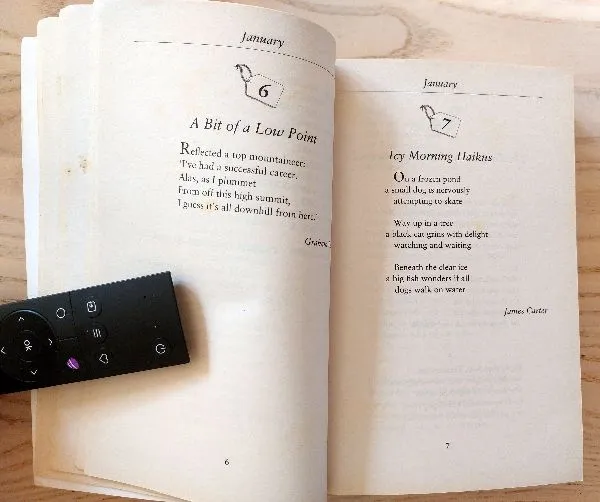 January
6
A Bit of a Low Point
Reflected a top mountaineer:
'I've had a successful career.
Alas, as I plummet
From off this high summit,
I guess it's all downhill from here.'
6
January
7
Icy Morning Haikus
On a frozen pond
a small dog is nervously
attempting to skate
Way up in a tree
a black cat grins with delight
watching and waiting
Beneath the clear ice
a big fish wonders if all
dogs walk on water
James Carter
7
OK